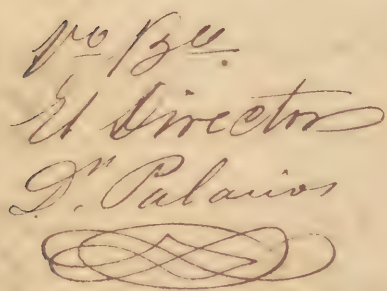 Vº Bº
El Director
Dr. Palacios